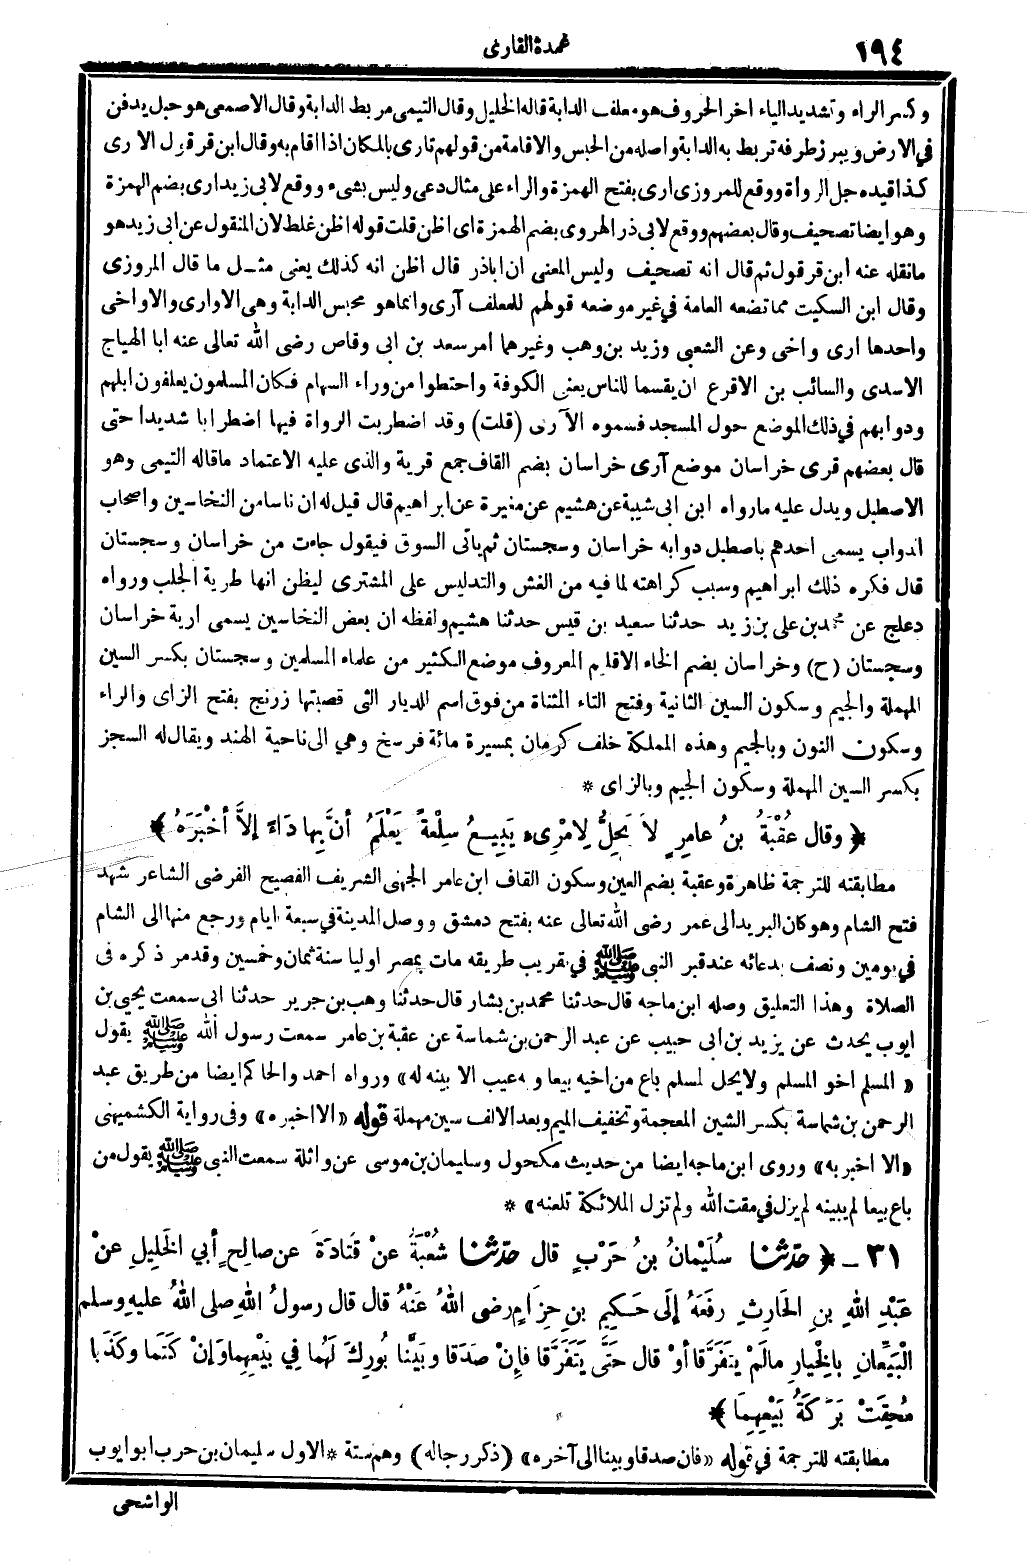 ١٩٤
عمدة القارى
وكسر الراء وتشديد الياء اخر الحروف هو معلف الدابة قاله الخليل وقال التيمى مربط الدابة وقال الاصمعى هو حبل يدفن
في الارض ويبرز طرفه تربط به الدابة واصله من الحبس والاقامة من قولهم تارى بالمكان اذا اقام به وقال ابن قرقول الارى
كذا قيده جل الرواة ووقع للمروزى ارى بفتح الهمزة والراء على مثال دعى وليس بشىء ووقع لابى زيد ارى بضم الهمزة
وهو ايضا تصحيف وقال بعضهم ووقع لابى ذر الهروى بضم الهمزة اى اظن قلت قوله اظن غلط لان المنقول عن ابى زيد هو
مانقله عنه ابن قرقول ثم قال انه تصحيف وليس المعنى ان اباذر قال اظن انه كذلك يعنى مثل ما قال المروزى
وقال ابن السكيت مما تضعه العامة في غير موضعه قولهم للمعلف آرى وانما هو محبس الدابة وهى الاوارى والاواخى
واحدها ارى واخى وعن الشعبي وزيد بن وهب وغيرهما امر سعد بن ابى وقاص رضى الله تعالى عنه ابا الهياج
الاسدى والسائب بن الاقرع ان يقسما للناس يعنى الكوفة واحتطوا من وراء السهام فكان المسلمون يعلفون ابلهم
ودوابهم في ذلك الموضع حول المسجد فسموه الآرى (قلت) وقد اضطربت الرواة فيها اضطرابا شديدا حتى
قال بعضهم قرى خراسان موضع آرى خراسان بضم القاف جمع قرية والذى عليه الاعتماد ماقاله التيمى وهو
الاصطبل ويدل عليه مارواه ابن ابى شيبة عن هشيم عن مغيرة عن ابراهيم قال قيل له ان ناسا من النخاسين واصحاب
الدواب يسمى احدهم باصطبل دوابه خراسان وسجستان ثم ياتى السوق فيقول جاءت من خراسان وسجستان
قال فكره ذلك ابراهيم وسبب كراهته لما فيه من الغش والتدليس على المشترى ليظن انها طرية الجلب ورواه
دعلج عن محمد بن على بن زيد حدثنا سعيد بن قيس حدثنا هشيم ولفظه ان بعض النخاسين يسمى ارية خراسان
وسجستان (ح) وخراسان بضم الخاء الاقليم المعروف موضع الكثير من علماء المسلمين وسجستان بكسر السين
المهملة والجيم وسكون السين الثانية وفتح التاء المثناة من فوق اسم للديار التى قصبتها زرنج بفتح الزاى والراء
وسكون النون وبالجيم وهذه المملكة خلف كرمان بمسيرة مائة فرسخ وهي الى ناحية الهند ويقال له السجز
بكسر السين المهملة وسكون الجيم وبالزاى *
﴿ وقال عُقْبَةُ بنُ عامِرٍ لاَ يَحِلُّ لِامْرِىءٍ يَبِيعُ سِلْعَةً يَعْلَمُ أنَّ بِها دَاءً إلاَّ أخْبَرَهُ ﴾
مطابقته للترجمة ظاهرة وعقبة بضم العين وسكون القاف ابن عامر الجهنى الشريف الفصيح الفرضى الشاعر شهد
فتح الشام وهو كان البريد الى عمر رضى الله تعالى عنه بفتح دمشق ووصل المدينة في سبعة ايام ورجع منها الى الشام
في يومين ونصف بدعائه عند قبر النبى ﷺ في تقريب طريقه مات بمصر اوليا سنة ثمان وخمسين وقد مر ذكره فى
الصلاة وهذا التعليق وصله ابن ماجه قال حدثنا محمد بن بشار قال حدثنا وهب بن جرير حدثنا ابى سمعت يحيى بن
ايوب يحدث عن يزيد بن ابى حبيب عن عبد الرحمن بن شماسة عن عقبة بن عامر سمعت رسول الله ﷺ يقول
«المسلم اخو المسلم ولا يحل لمسلم باع من اخيه بيعا وبه عيب الا بينه له» ورواه احمد والحاكم ايضا من طريق عبد
الرحمن بن شماسة بكسر الشين المعجمة وتخفيف الميم وبعد الالف سين مهملة قوله «الا اخبره» وفى رواية الكشميهنى
«الا اخبر به» وروى ابن ماجه ايضا من حديث مكحول وسليمان بن موسى عن واثلة سمعت النبى ﷺ يقول من
باع بيعا لم يبينه لم يزل في مقت الله ولم تزل الملائكة تلعنه» *
٣١ - ﴿ حدّثنا سُلَيْمانُ بنُ حَرْبٍ قال حدّثنا شُعْبَةُ عنْ قَتادَةَ عن صالِحٍ أبي الخَلِيلِ عنْ
عَبْدِ اللهِ بنِ الحَارِثِ رفَعَهُ إلَى حَكِيمِ بنِ حِزَامٍ رضى اللهُ عَنْهُ قال قال رسولُ اللهِ صلى اللهُ عليهِ وسلم
الْبَيِّعانِ بالخِيارِ مالَمْ يَتَفَرَّقا أوْ قال حَتَّى يَتَفَرَّقا فإنْ صَدَقا وبَيَّنا بُورِكَ لَهُما فِي بَيْعِهِما وإنْ كَتَما وكَذَبا
مُحِقَتْ بَرَكَةُ بَيْعِهِما ﴾
مطابقته للترجمة في قوله «فان صدقا وبينا الى آخره» (ذكر رجاله) وهم ستة * الاول سليمان بن حرب ابو ايوب
الواشحى